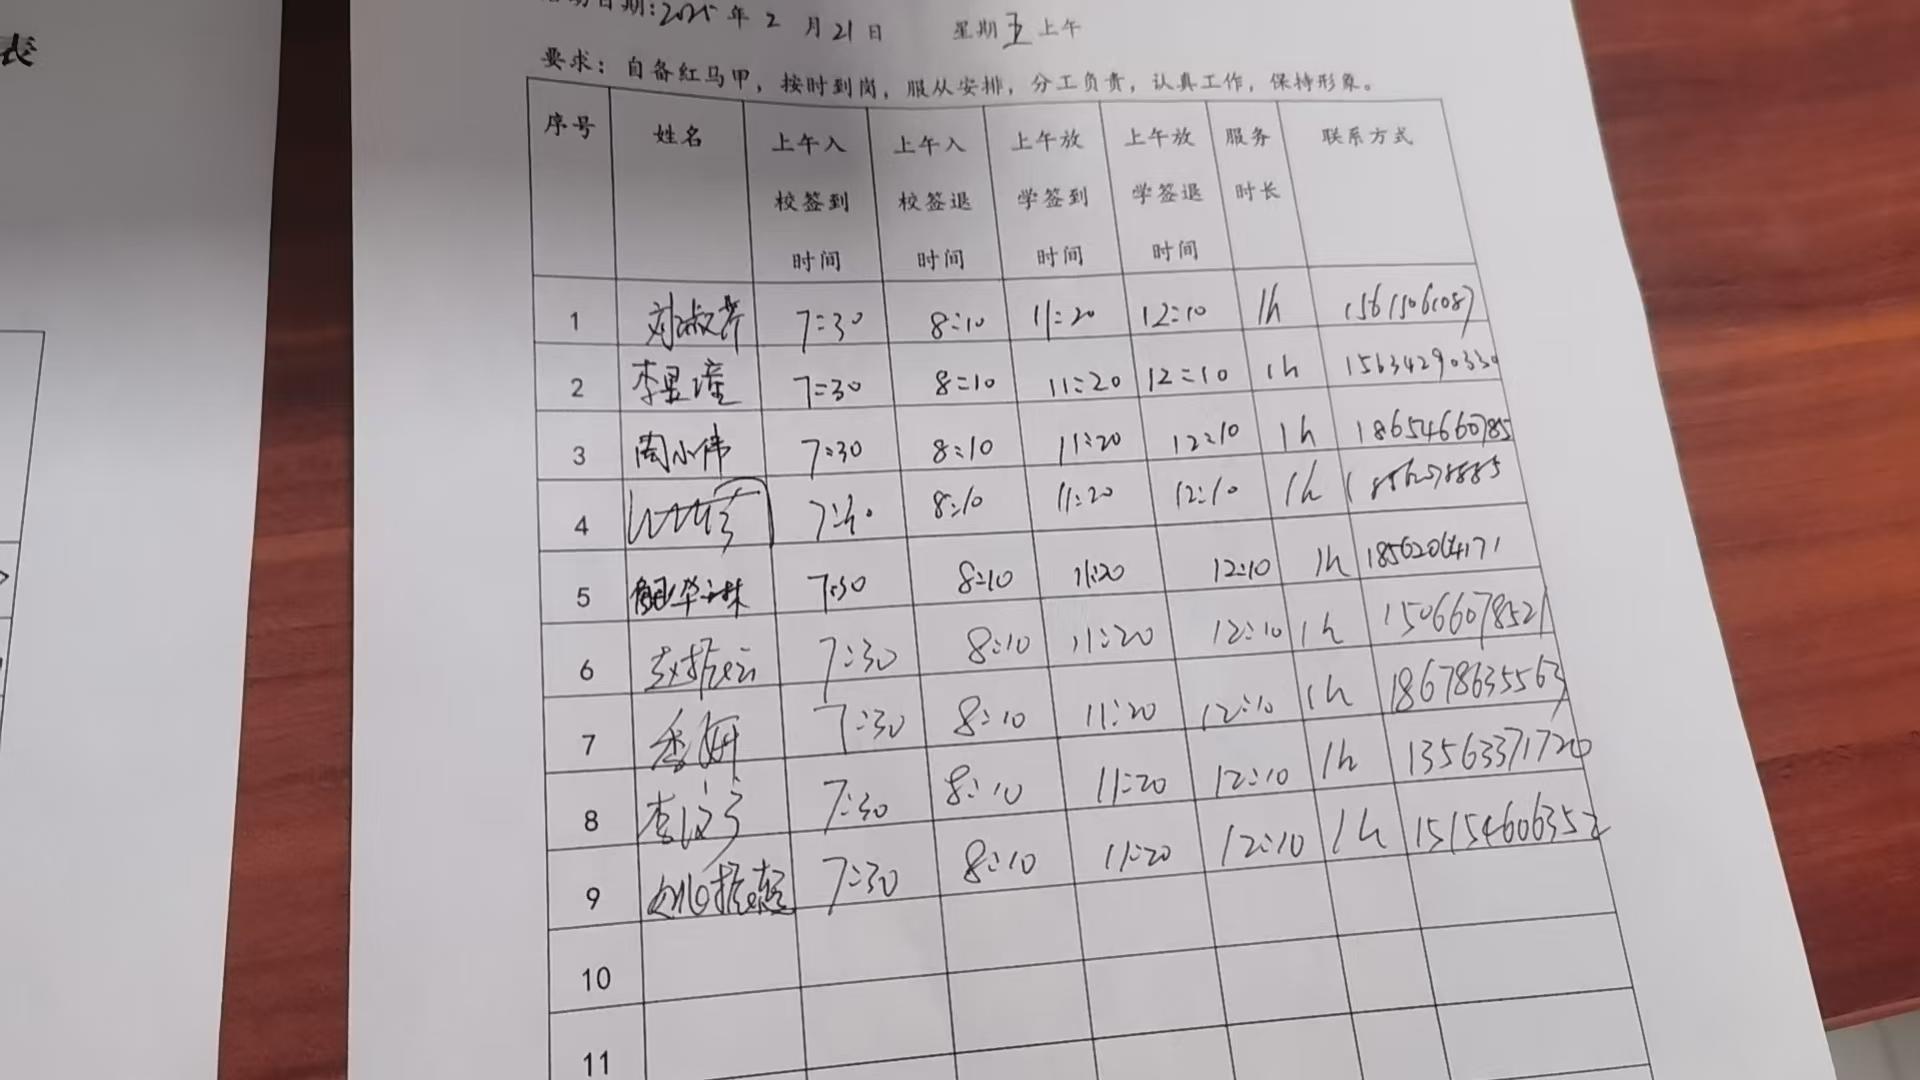 表
活动日期:2025年2月21日 星期五上午
要求：自备红马甲，按时到岗，服从安排，分工负责，认真工作，保持形象。
序号 姓名 上午入校签到时间 上午入校签退时间 上午放学签到时间 上午放学签退时间 服务时长 联系方式
1 刘淑芹 7:30 8:10 11:20 12:10 1h 15611506108
2 李昱瞳 7:30 8:10 11:20 12:10 1h 15634290330
3 陶小伟 7:30 8:10 11:20 12:10 1h 18654660785
4 8:10 11:20 12:10 1h
5 7:30 8:10 11:20 12:10 1h 18562064171
6 赵振云 7:30 8:10 11:20 12:10 1h 15066078521
7 7:30 8:10 11:20 12:10 1h 18678635563
8 7:30 8:10 11:20 12:10 1h 13563371720
9 7:30 8:10 11:20 12:10 1h 15154606352
10
11